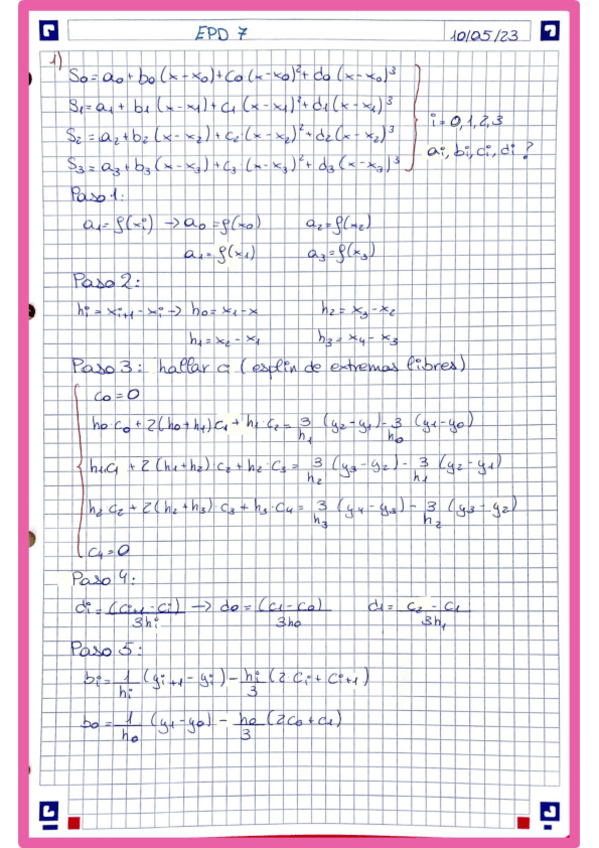 EPD 7
10/05/23
1)
S0 = a0 + b0 (x-x0) + c0 (x-x0)² + d0 (x-x0)³
S1 = a1 + b1 (x-x1) + c1 (x-x1)² + d1 (x-x1)³
S2 = a2 + b2 (x-x2) + c2 (x-x2)² + d2 (x-x2)³
S3 = a3 + b3 (x-x3) + c3 (x-x3)² + d3 (x-x3)³
i = 0,1,2,3
ai, bi, ci, di ?
Paso 1:
a1 = f(xi) → a0 = f(x0) a2 = f(x2)
a1 = f(x1) a3 = f(x3)
Paso 2:
hi = xi+1 - xi → h0 = x1 - x h2 = x3 - x2
h1 = x2 - x1 h3 = x4 - x3
Paso 3: hallar ci (esplin de extremas libres)
c0 = 0
h0·c0 + 2(h0+h1) c1 + h1·c2 = 3/h1 (y2-y1) - 3/h0 (y1-y0)
h1c1 + 2(h1+h2) c2 + h2·c3 = 3/h2 (y3-y2) - 3/h1 (y2-y1)
h2·c2 + 2(h2+h3) c3 + h3·c4 = 3/h3 (y4-y3) - 3/h2 (y3-y2)
c4 = 0
Paso 4:
di = (ci+1 - ci)/3hi → d0 = (c1-c0)/3h0 d1 = c2 - c1/3h1
Paso 5:
bi = 1/hi (yi+1 - yi) - hi/3 (2ci + ci+1)
b0 = 1/h0 (y1-y0) - h0/3 (2c0+c1)